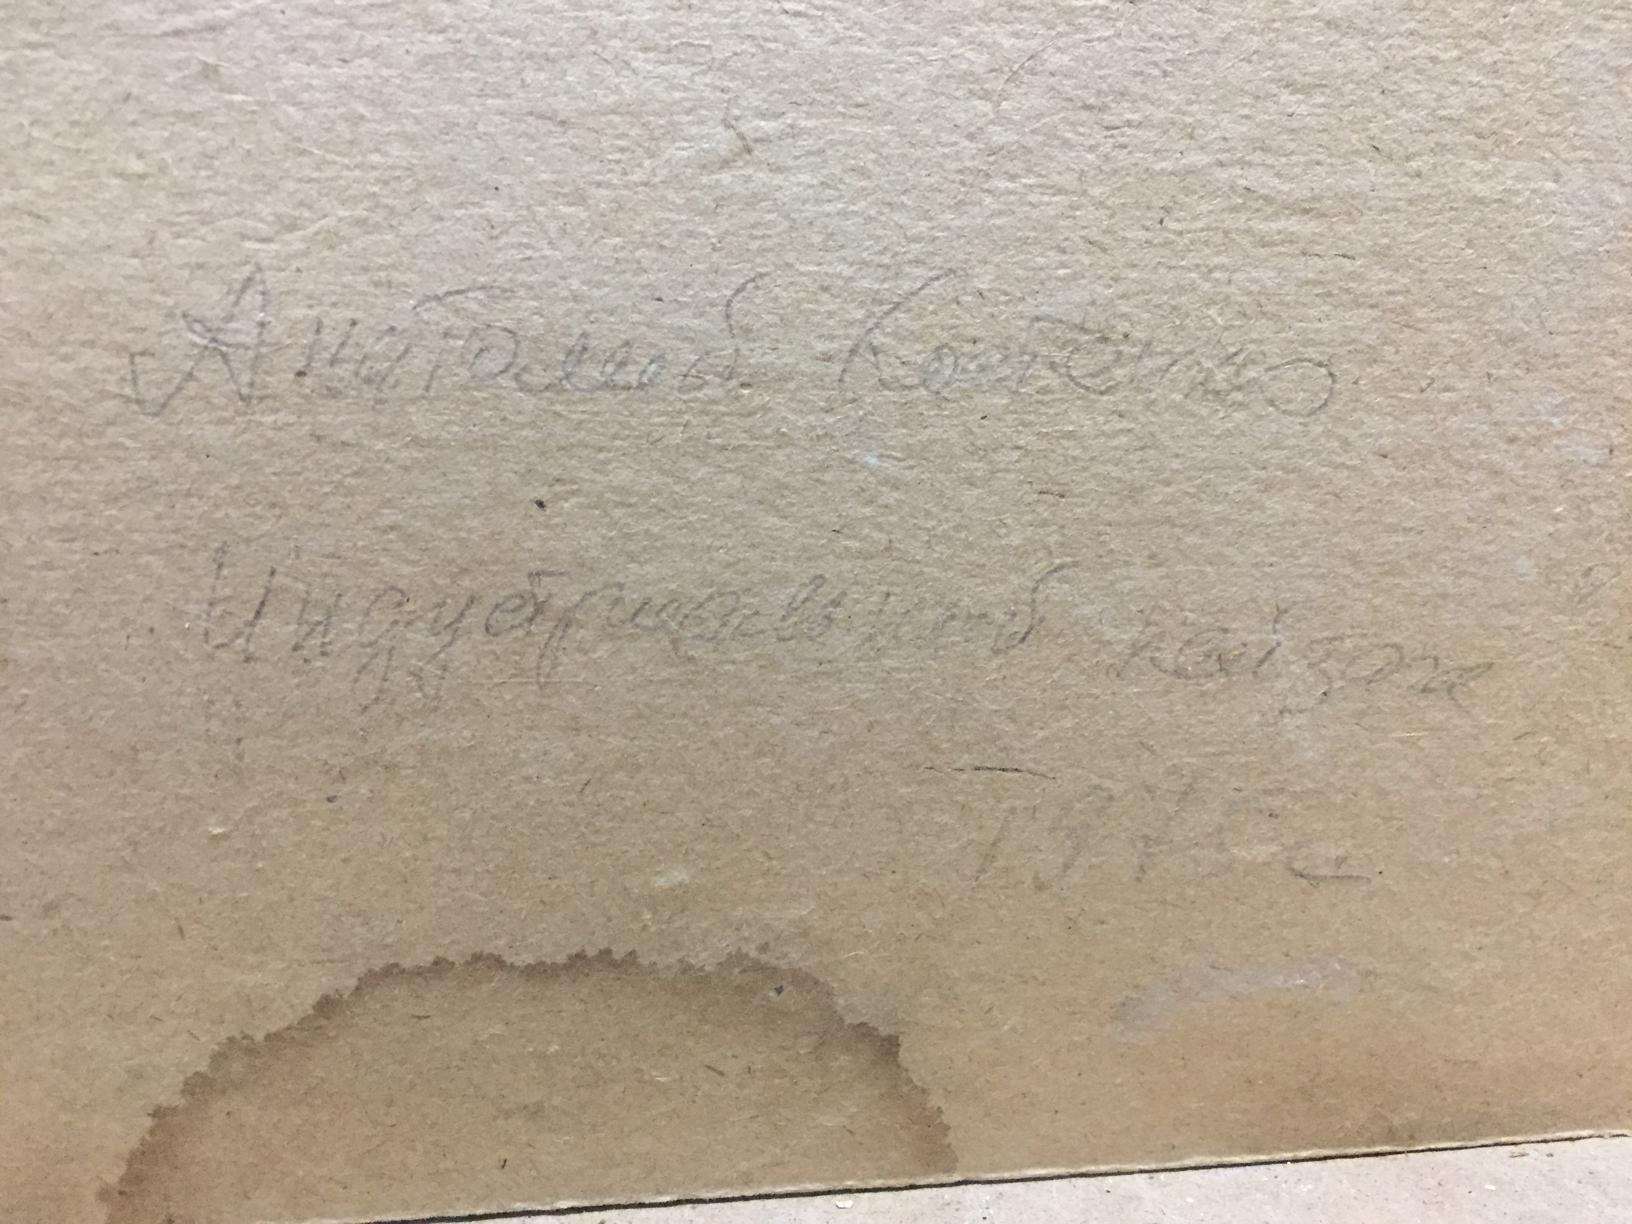 Анатолий Костенко
Индустриальный пейзаж
197